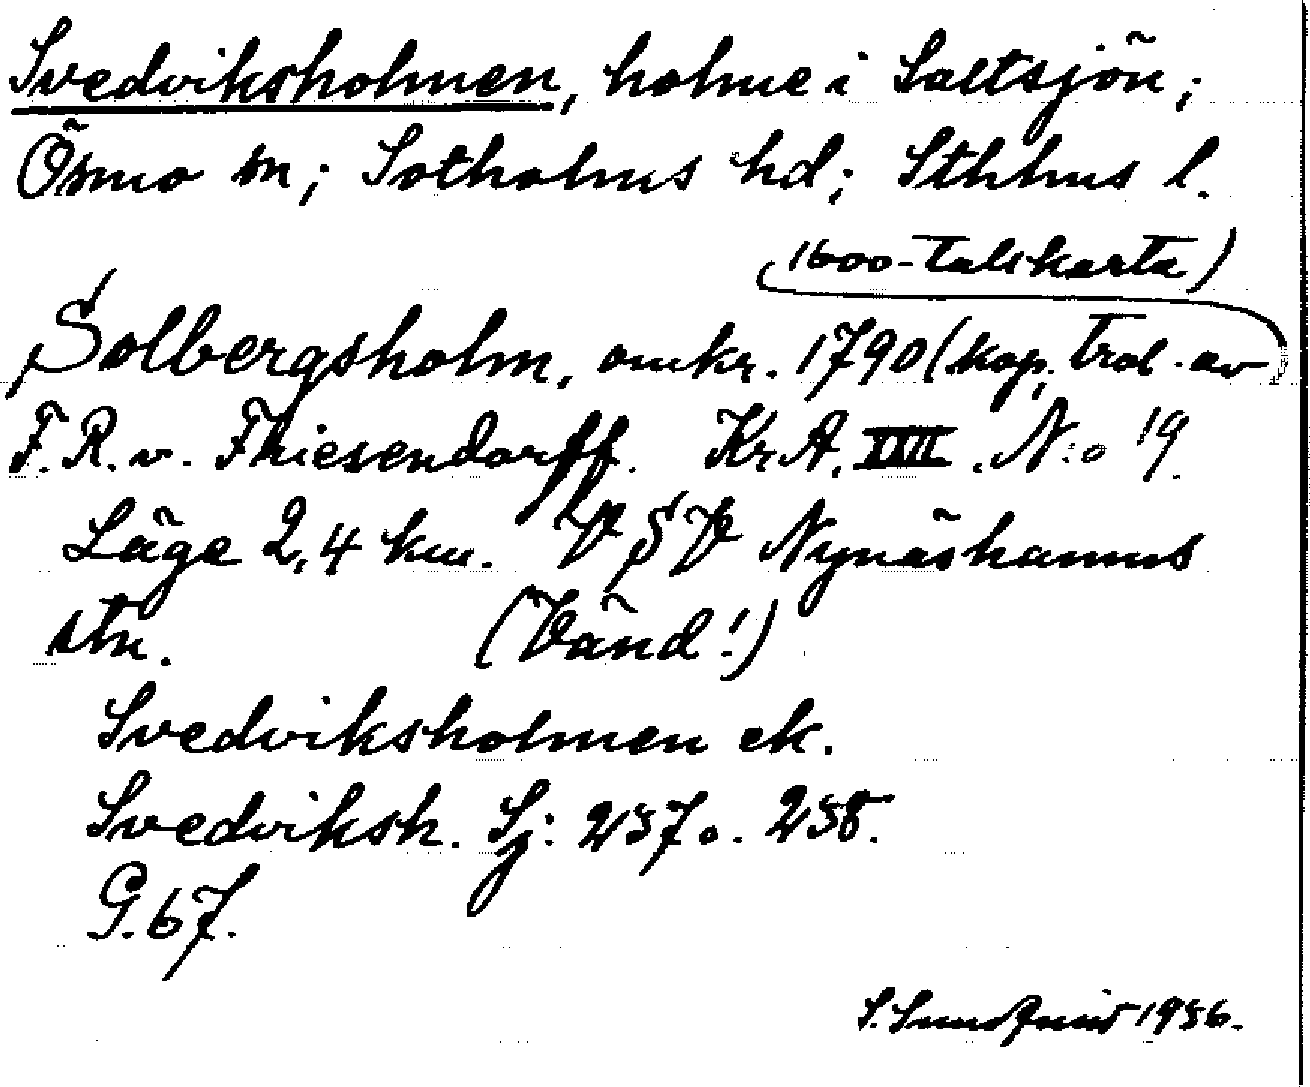 Svedviksholmen, holme i Saltsjön;
Ösmo sn; Sotholms hd; Sthlms l.
1600-talskarta)
Solbergsholm, omkr. 1790 (kop. trol. av
F.R. v. Friesendorff. Kr.A. XXII. N:o 19.
Läge 2,4 km. V S V Nynäshamns
stn. (Vänd!)
Svedviksholmen ek.
Svedviksh. Sj: 257 o. 258.
G. 67.
S. Sundquist 1956.